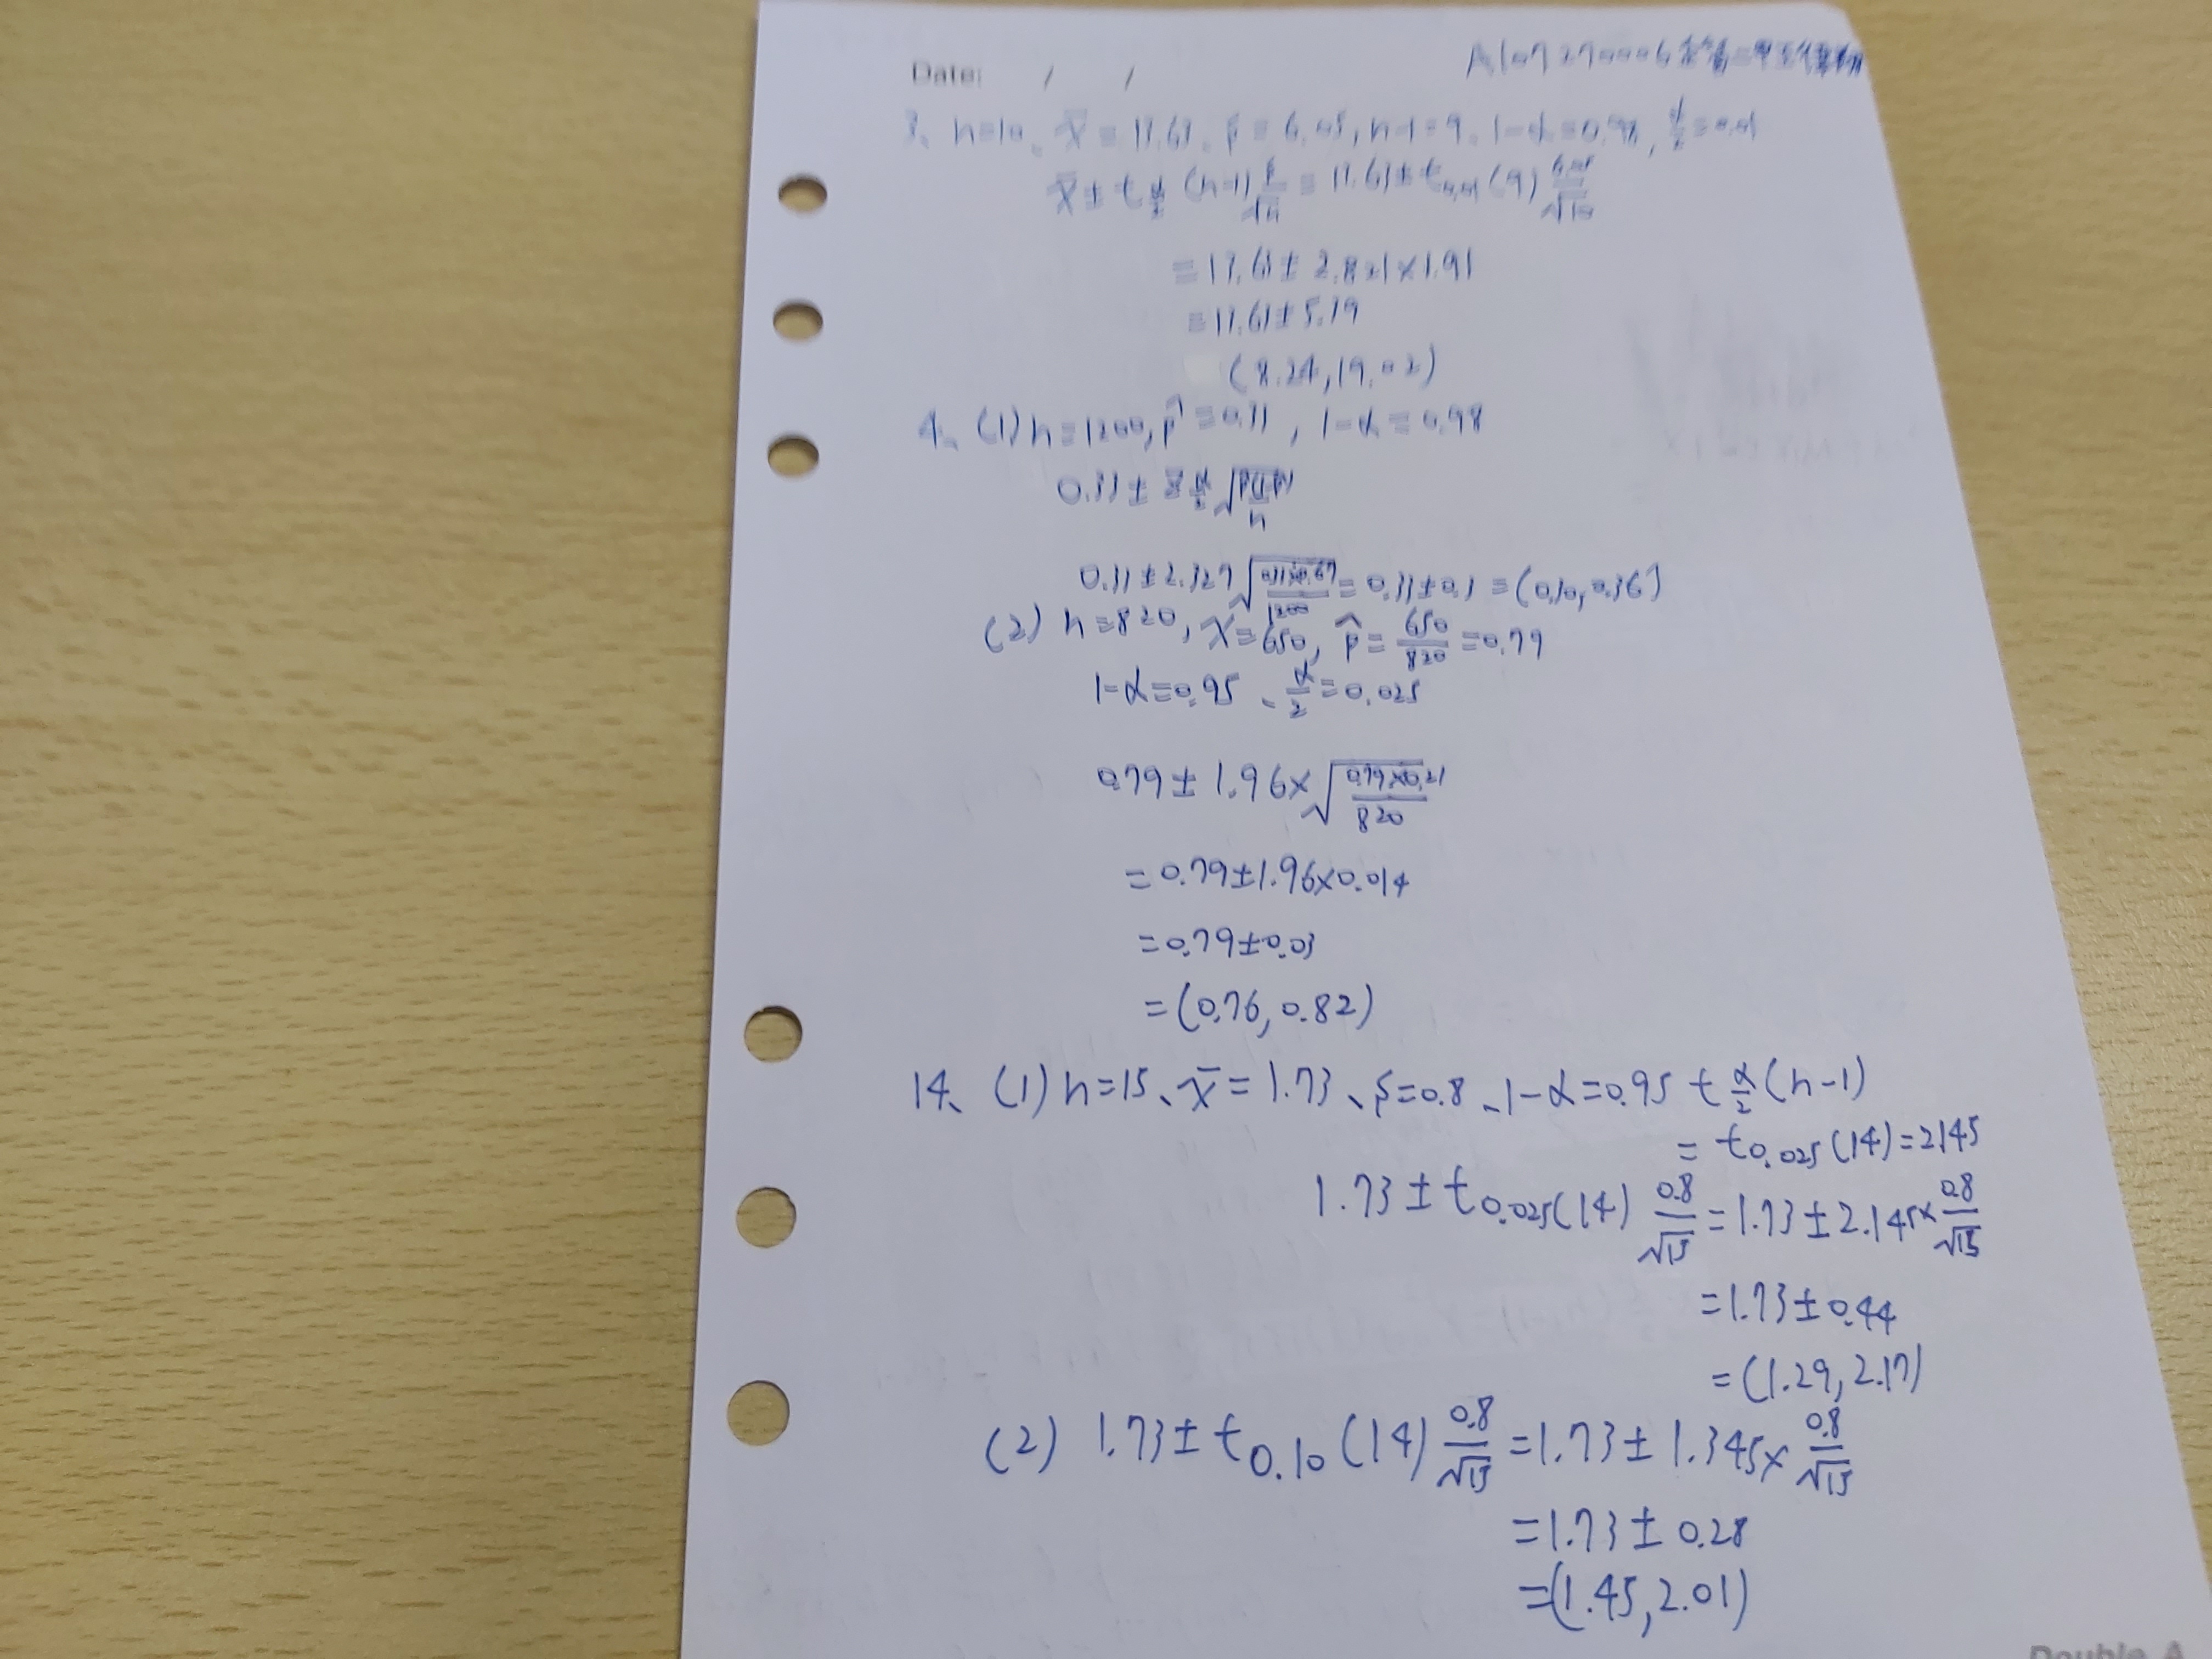 Date: / /
3、n=10、x̄=13.63、s=6.05, n-1=9、1-α=0.98, α/2=0.01
x̄ ± t α/2 (n-1) s/√n = 13.63 ± t0.01 (9) 6.05/√10
= 13.63 ± 2.821×1.91
= 13.63 ± 5.39
(8.24, 19.02)
4、(1) n=1200, p̂=0.33, 1-α=0.98
0.33 ± z α/2 √
0.33 ± 2.327 √0.33×0.67/1200 = 0.33±0.3 = (0.30, 0.36)
(2) n=820, x=650, p̂=650/820=0.79
1-α=0.95、α/2=0.025
0.79 ± 1.96×√0.79×0.21/820
= 0.79±1.96×0.014
= 0.79±0.03
= (0.76, 0.82)
14、(1) n=15、x̄=1.73、s=0.8、1-α=0.95 t α/2 (n-1)
= t0.025 (14)=2145
1.73 ± t0.025(14) 0.8/√15 = 1.73 ± 2.145× 0.8/√15
= 1.73 ± 0.44
= (1.29, 2.17)
(2) 1.73 ± t0.10 (14) 0.8/√15 = 1.73 ± 1.345× 0.8/√15
= 1.73 ± 0.28
= (1.45, 2.01)
Double A